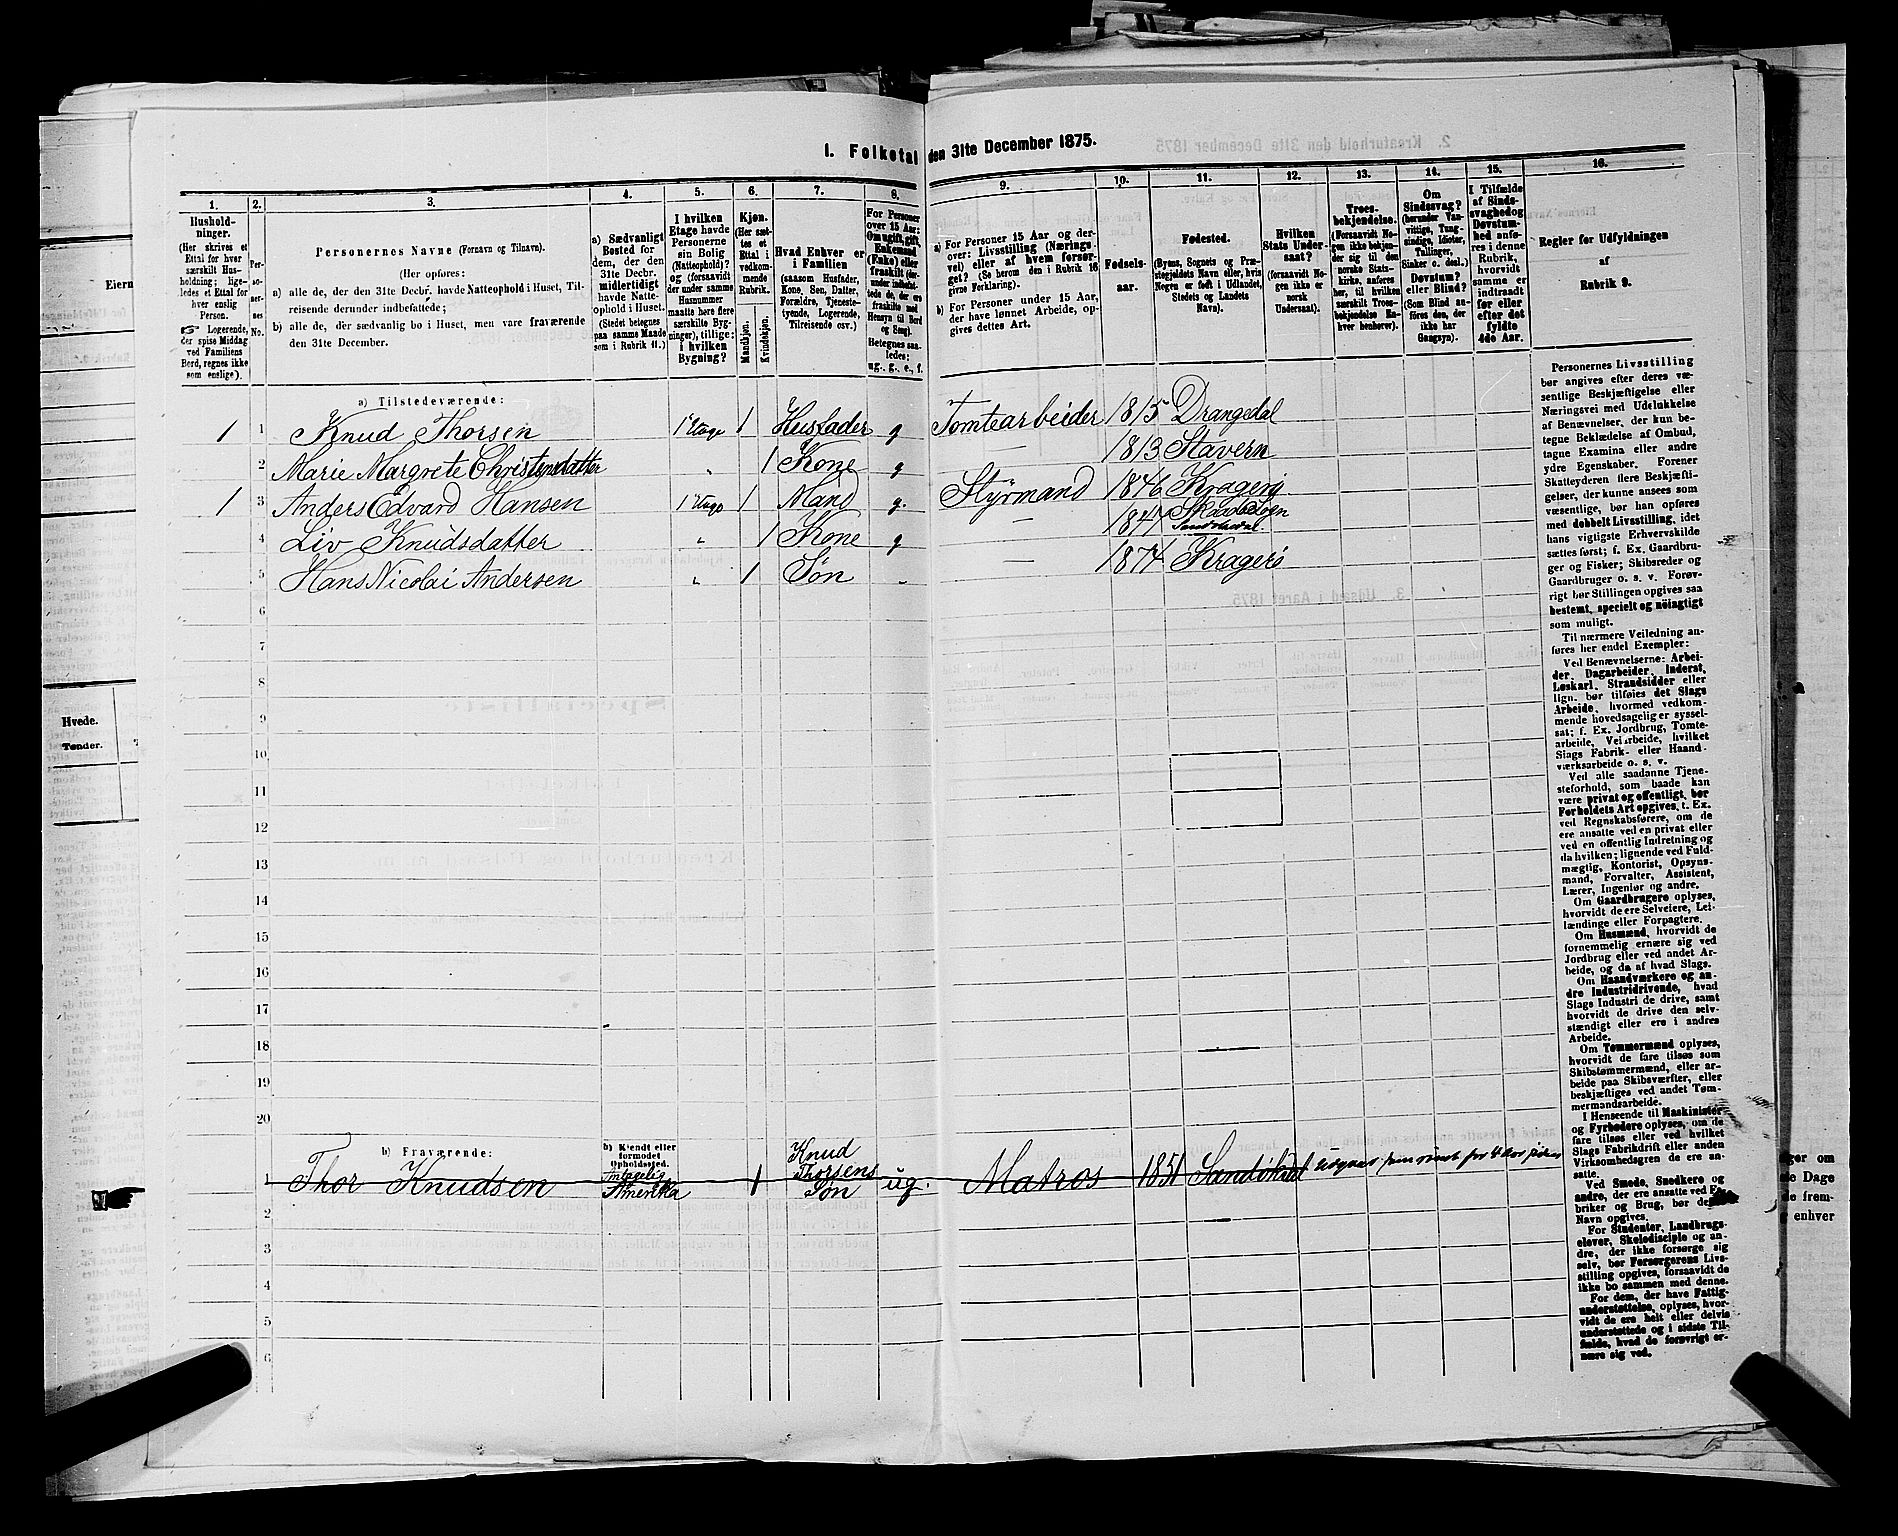 I. Folketal den 31te December 1875.
1. 2. 3. 4. 5. 6. 7. 8. 9. 10. 11. 12. 13. 14. 15. 16.
Hushold-
ninger.
(Her skrives et
Ettal for hver
særskilt Hus-
holdning; lige-
ledes et Ettal for
hver enslig
Person.
☞ Logerende,
der spise Middag
ved Familiens
Bord, regnes ikke
som enslige).
Per-
so-
ner-
nes
No.
Personernes Navne (Fornavn og Tilnavn).
(Her opføres:
a) alle de, der den 31te Decbr. havde Natteophold i Huset, Til-
reisende derunder indbefattede;
b) alle de, der sædvanlig bo i Huset, men vare fraværende
den 31te December.
a) Sædvanligt
Bosted for
dem, der den
31te Decbr.
midlertidigt
havde Natte-
ophold i Huset.
(Stedet betegnes
paa samme Maade
som i Rubrik 11.)
I hvilken
Etage havde
Personerne
sin Bolig
(Natteophold)?
og (forsaavidt
der under samme
Husnummer
maatte høre flere
særskilte Byg-
ninger), tillige:
i hvilken
Bygning?
Kjøn.
(Her sæt-
tes et
Ettal i
vedkom-
mende
Rubrik.
Mandkjøn.
Kvindekjøn.
Hvad Enhver er
i Familien
(saasom Husfader,
Kone, Søn, Datter,
Forældre, Tjeneste-
tyende, Logerende,
Tilreisende osv.)
For Personer
over 15 Aar:
Om ugift, gift,
Enkemand
(Enke) eller
fraskilt (der-
under indbefat-
tede de, der ere
fraskilte med
Hensyn til Bord
og Seng).
Betegnes saa-
ledes:
ug., g., e., f.
a) For Personer 15 Aar og der-
over: Livsstilling (Nærings-
vei) eller af hvem forsør-
get? (Se herom den i Rubrik 16
givne Forklaring).
b) For Personer under 15 Aar,
der have lønnet Arbeide, op-
gives dettes Art.
Fødsels-
aar.
Fødested.
(Byens, Sognets og Præ-
stegjeldets Navn eller, hvis
Nogen er født i Udlandet,
Stedets og Landets
Navn).
Hvilken
Stats Under-
saat?
(forsaavidt No-
gen ikke er
norsk
Undersaat).
Troes-
bekjendelse.
(Forsaavidt No-
gen ikke bekjen-
der sig til den
norske Stats-
kirke, anføres
her, til hvilket
særskilt Troes-
bekjendelse En-
hver henhører).
Om
Sindssvag?
(herunder Van-
vittige, Tung-
sindige, Idioter,
Tullinger,
Sinker o. desl.)
Døvstum?
eller Blind?
(Som Blind an-
føres den, der
ikke har
Gangsyn).
I Tilfælde
af Sinds-
svaghed og
Døvstum-
hed anfø-
res i denne
Rubrik,
hvorvidt
samme er
indtraadt
før eller
efter det
fyldte
4de Aar.
Regler for Udfyldningen
af
Rubrik 9.
a) Tilstedeværende:
1 1 Knud Thorsen 1 Etage 1 Husfader g Tomtearbeider 1815 Drangedal
2 Marie Margrete Christensdatter " 1 Kone g 1813 Stavern
1 3 Anders Edvard Hansen 1 Etage 1 Mand g. Styrmand 1846 Kragerø
4 Liv Knudsdatter " 1 Kone g — 1847 Sandøkedal
5 Hans Nicolai Andersen " 1 Søn " — 1874 Kragerø
6
7
8
9
10
11
12
13
14
15
16
17
18
19
20
b) Fraværende:
b) Kjendt eller
formodet
Opholdssted.
1 Thor Knudsen Antagelig Amerika 1 Knud Thorsens Søn ug. Matros 1851 Sandøkedal
2
3
4
5
6
Personernes Livsstilling
bør angives efter deres væ-
sentlige Beskjæftigelse eller
Næringsvei med Udelukkelse
af Benævnelser, der kun be-
tegne Beklædelse af Ombud,
tagne Examina eller andre
ydre Egenskaber. Forener
Skatteyderen flere Beskjæfti-
gelser, der kunne ansees som
væsentlige, bør han opføres
med dobbelt Livsstilling, idet
hans vigtigste Erhvervskilde
sættes først; f. Ex. Gaardbru-
ger og Fisker; Skibsreder og
Gaardbruger o. s. v. Forøv-
rigt bør Stillingen opgives saa
bestemt, specielt og nöiagtigt
som muligt.
Til nærmere Veiledning an-
føres her endel Exempler:
Ved Benævnelserne: Arbei-
der, Dagarbeider, Inderst,
Løskarl, Strandsidder eller
lign. bør tilføies det Slags
Arbeide, hvormed vedkom-
mende hovedsagelig er syssel-
sat; f. Ex. Jordbrug, Tomte-
arbeide, Veiarbeide, hvilket
Slags Fabrik- eller Haand-
værksarbeide o. s. v.
Ved alle saadanne Tjene-
steforhold, som baade kan
være privat og offentligt, bør
Forholdets Art opgives, t. Ex.
ved Regnskabsførere, om de
ere ansatte ved en privat eller
ved en offentlig Indretning og
da hvilken; lignende ved Fuld-
mægtig, Kontorist, Opsyns-
mand, Forvalter, Assistent,
Lærer, Ingeniør og andre.
Om Gaardbrugere oplyses,
hvorvidt de ere Selveiere, Lei-
lændinge eller Forpagtere.
Om Husmænd, hvorvidt de
fornemmelig ernære sig ved
Jordbrug eller ved andet Ar-
beide, og da af hvad Slags.
Om Haandværkere og an-
dre Industridrivende, hvad
Slags Industri de drive, samt
hvorvidt de drive den selv-
stændigt eller ere i andres
Arbeide.
Om Tømmermænd oplyses,
hvorvidt de fare tilsøs som
Skibstømmermænd, eller ar-
beide paa Skibsværfter, eller
beskjæftiges ved andet Tøm-
mermandsarbeide.
I Henseende til Maskinister
og Fyrbødere oplyses, om de
fare tilsøs eller ved hvilket
Slags Fabrikdrift eller anden
Virksomhedsgren de ere an-
satte.
Ved Smede, Snedkere og
andre, der ere ansatte ved Fa-
briker og Brug, bør dettes
Navn opgives.
For Studenter, Landbrugs-
elever, Skoledisciple og an-
dre, der ikke forsørge sig
selv, bør Forsørgerens Livs-
stilling opgives, forsaavidt de
ikke bo sammen med denne.
For dem, der have Fattig-
understøttelse, oplyses, hvor-
vidt de ere helt eller delvis
understøttede og i sidste Til-
fælde, hvad de forøvrigt er-
nære sig ved.
Hvede.
Tønder.